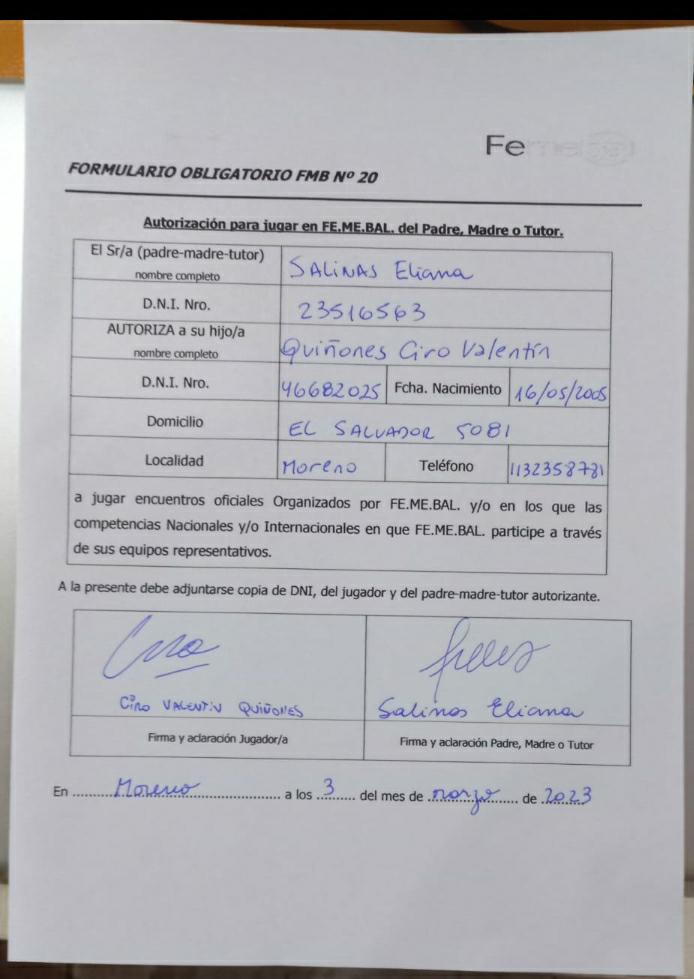 Femebal
FORMULARIO OBLIGATORIO FMB Nº 20
Autorización para jugar en FE.ME.BAL. del Padre, Madre o Tutor.
El Sr/a (padre-madre-tutor)
nombre completo
SALINAS Eliana
D.N.I. Nro.
23516563
AUTORIZA a su hijo/a
nombre completo
Quiñones Ciro Valentín
D.N.I. Nro. 46682025 Fcha. Nacimiento 16/05/2005
Domicilio EL SALVADOR 5081
Localidad Moreno Teléfono 1132358781
a jugar encuentros oficiales Organizados por FE.ME.BAL. y/o en los que las
competencias Nacionales y/o Internacionales en que FE.ME.BAL. participe a través
de sus equipos representativos.
A la presente debe adjuntarse copia de DNI, del jugador y del padre-madre-tutor autorizante.
CIRO VALENTIN QUIÑONES
Salinas Eliana
Firma y aclaración Jugador/a
Firma y aclaración Padre, Madre o Tutor
En Moreno a los 3 del mes de marzo de 2023